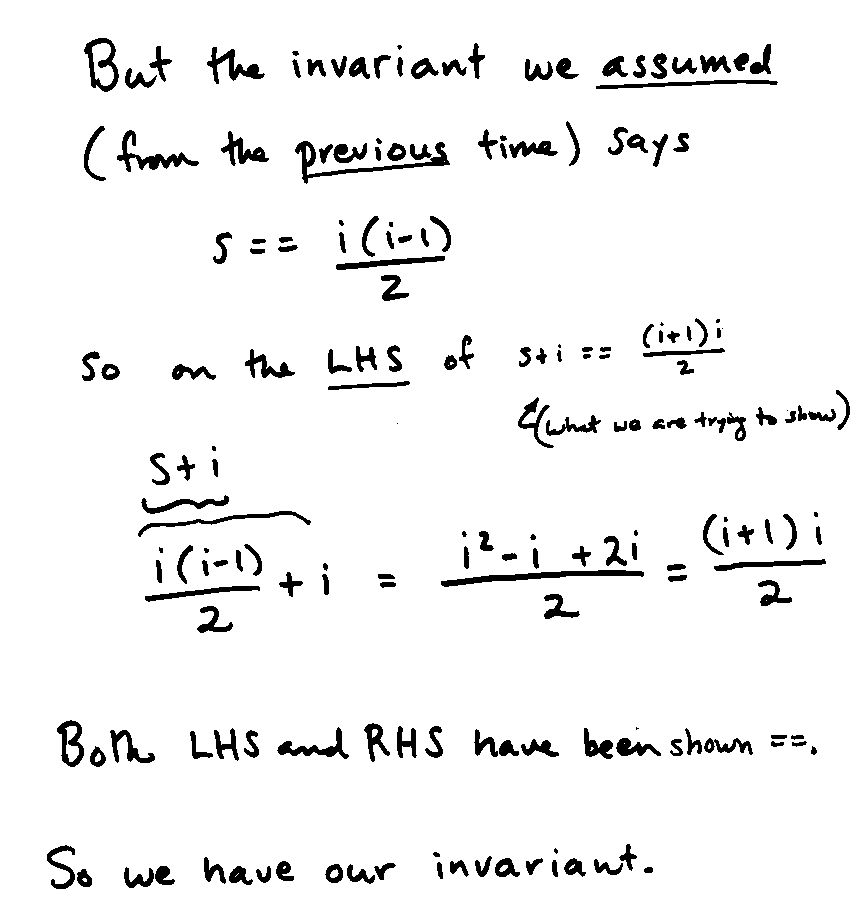 But the invariant we assumed
(from the previous time) says
s == i(i-1)/2
so on the LHS of s+i == (i+1)i/2
(what we are trying to show)
s+i
i(i-1)/2 + i = i²-i+2i/2 = (i+1)i/2
Both LHS and RHS have been shown ==.
So we have our invariant.